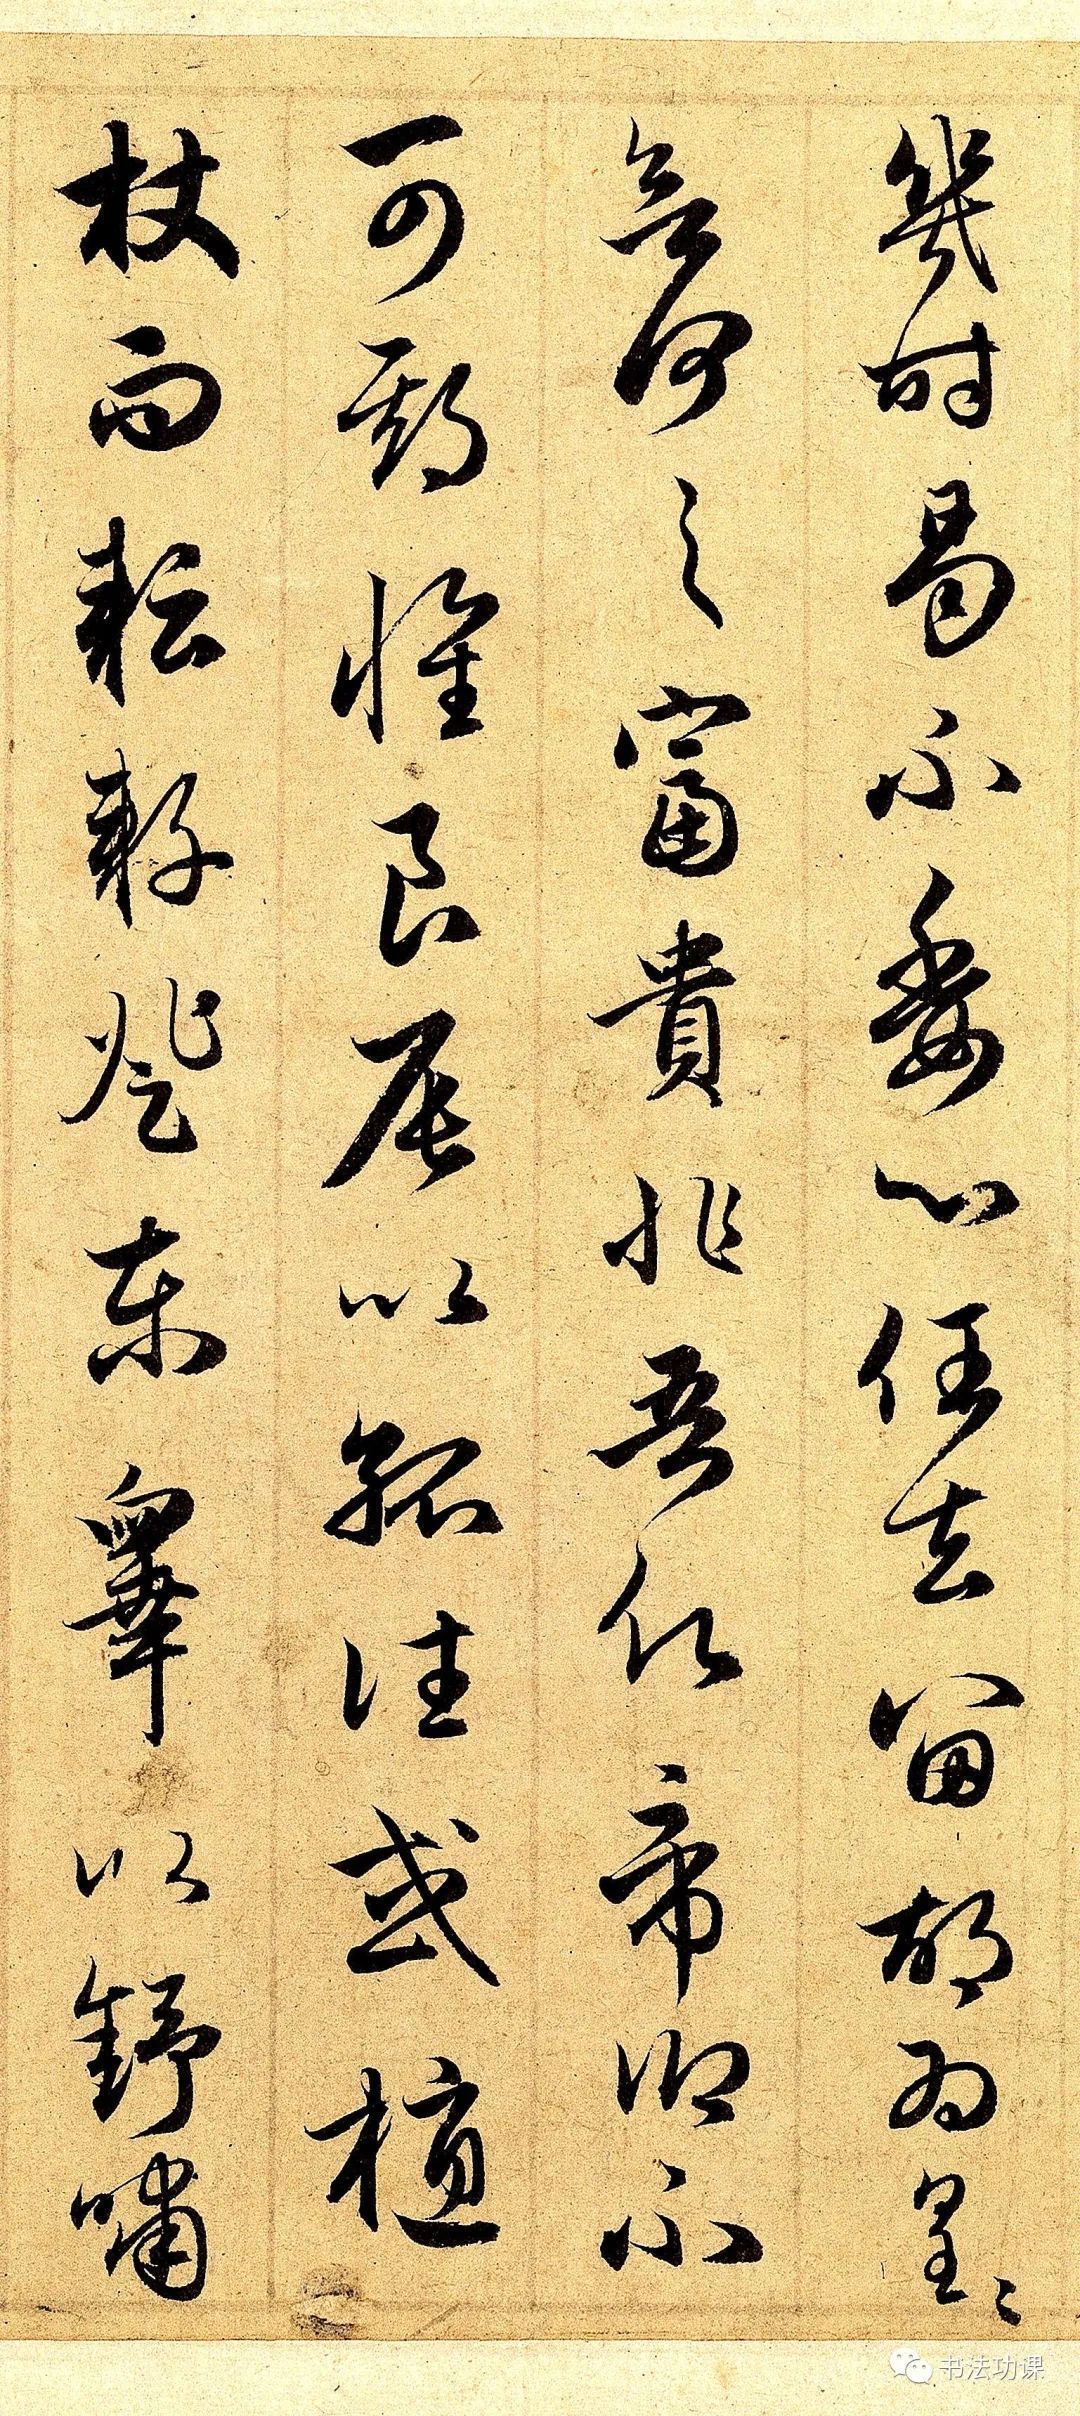 幾時曷不委心任去留胡為皇〻
欲何之富貴非吾願帝鄉不
可期惟良辰以孤往或植
杖而耘耔登東皋以舒嘯
书法功课